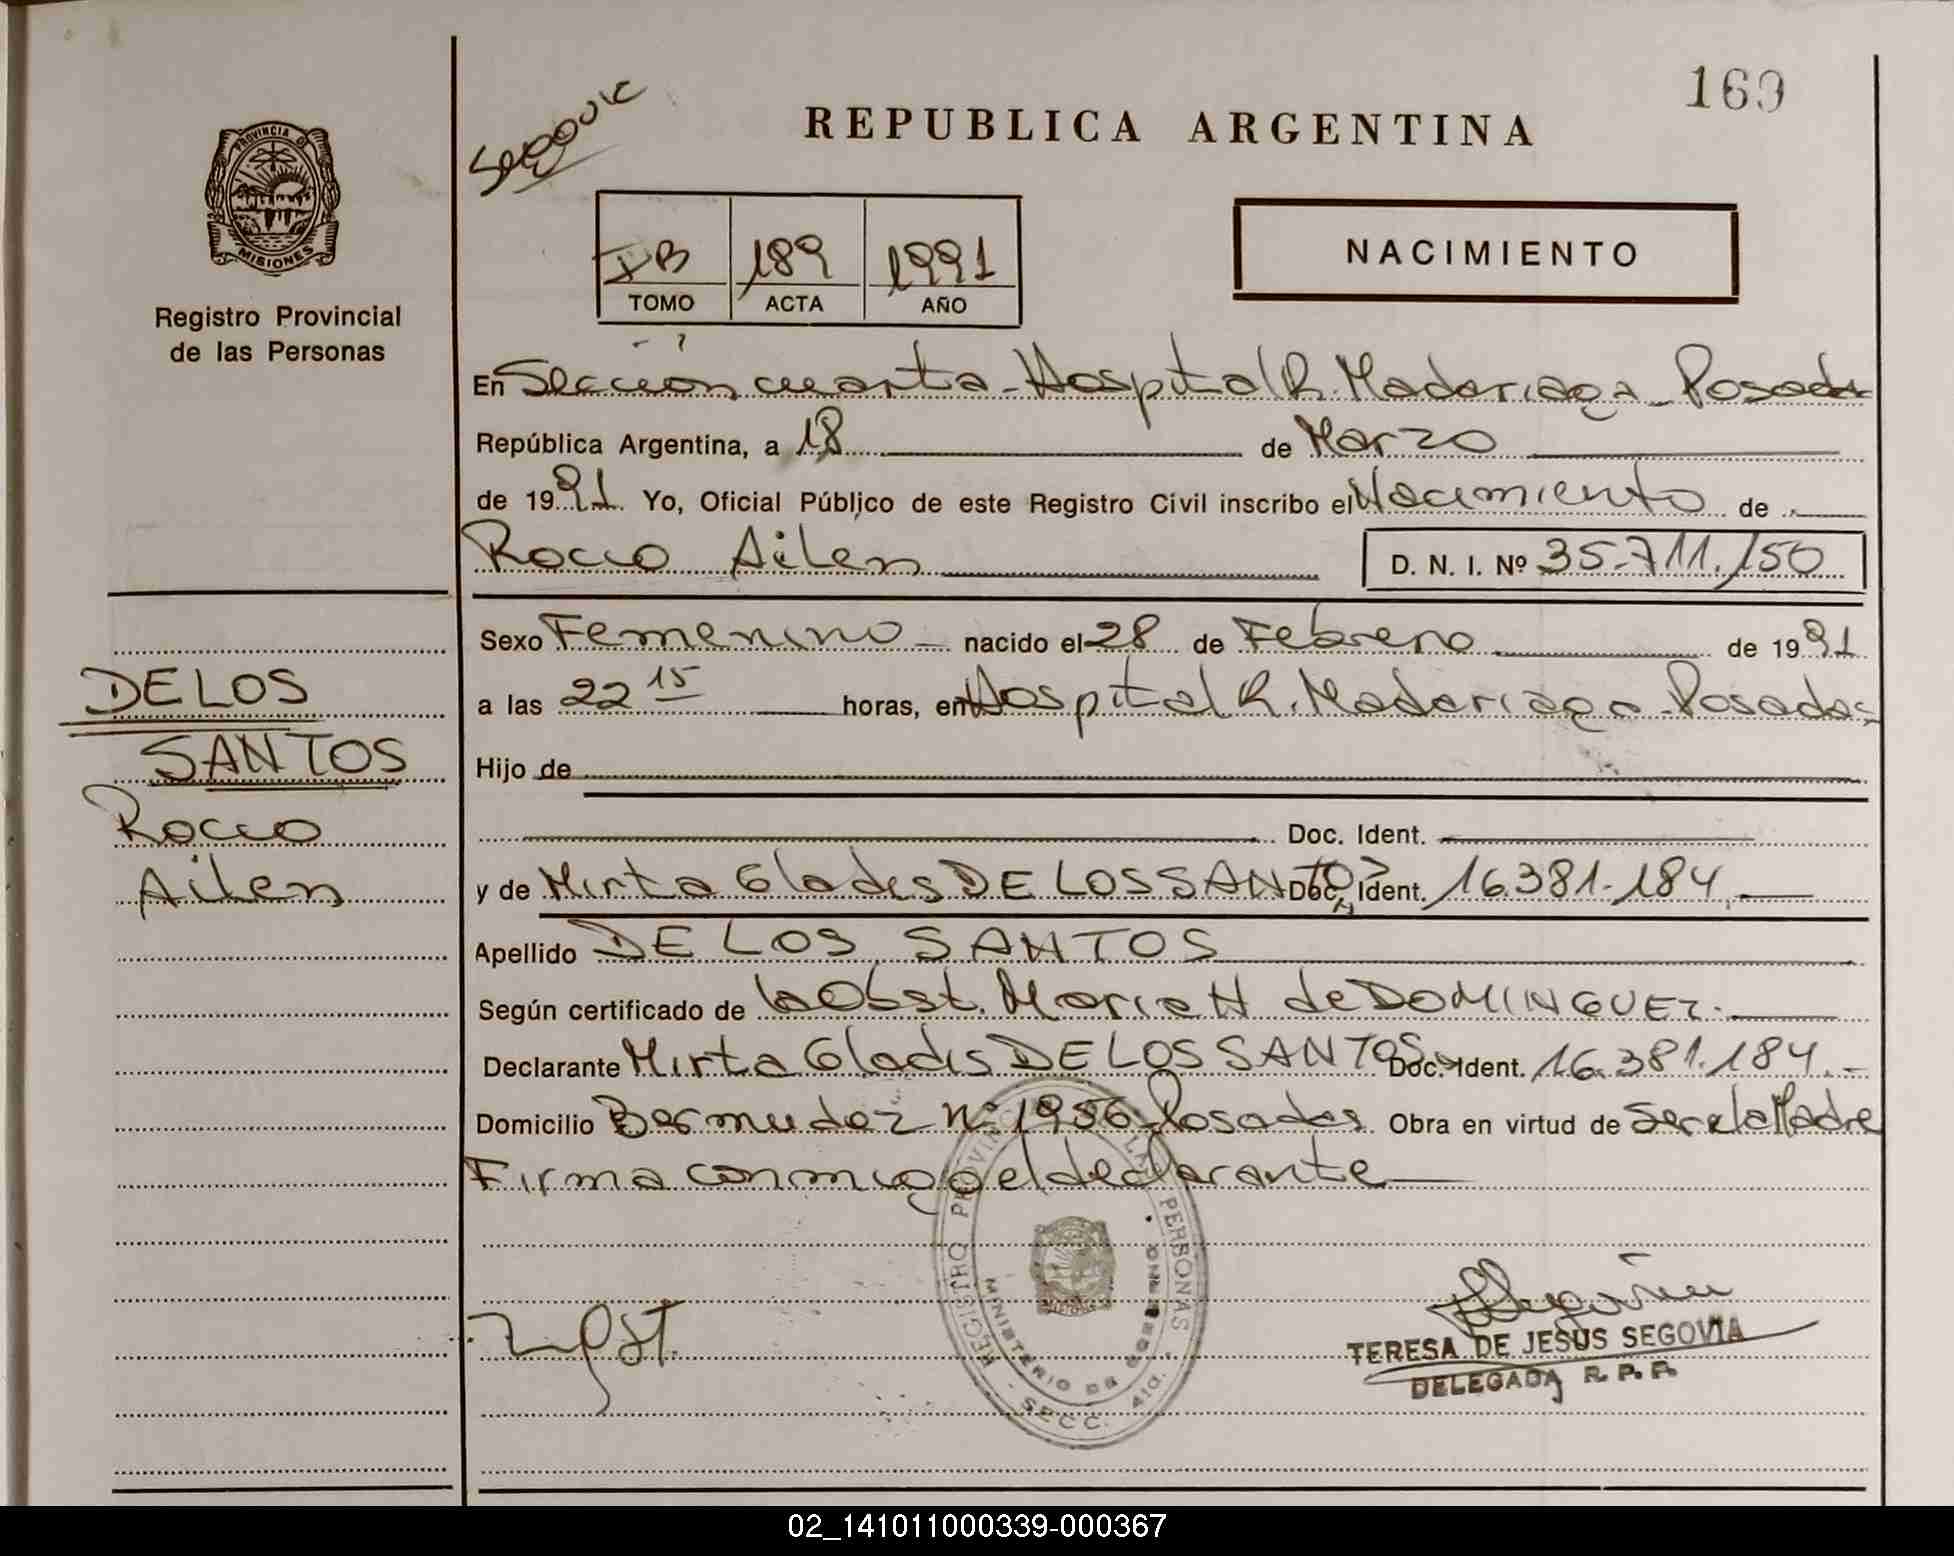 169
Segovia
REPUBLICA ARGENTINA
PROVINCIA DE
MISIONES
Registro Provincial
de las Personas
IB 189 1991
TOMO ACTA AÑO
NACIMIENTO
En Sección cuarta - Hospital R. Madariaga - Posadas
República Argentina, a 18 de Marzo
de 1991. Yo, Oficial Público de este Registro Civil inscribo el Nacimiento de
Rocio Ailen D. N. I. Nº 35.711.150
Sexo Femenino - nacido el 28 de Febrero de 1991
a las 22 15 horas, en Hospital R. Madariaga - Posadas
Hijo de
Doc. Ident.
y de Mirta Gladis DE LOS SANTOS Doc. Ident. 16.381.184
Apellido DE LOS SANTOS
Según certificado de la Obst. Maria H de DOMINGUEZ.
Declarante Mirta Gladis DE LOS SANTOS Doc. Ident. 16.381.184.-
Domicilio Bermudez Nº 1956 Posadas Obra en virtud de Ser la Madre
Firma conmigo el declarante
DE LOS
SANTOS
Rocio
Ailen
REGISTRO PROVINCIAL DE LAS PERSONAS
MINISTERIO DE GOBIERNO
SECC. 4ta.
TERESA DE JESUS SEGOVIA
DELEGADA R. P. P.
02_141011000339-000367